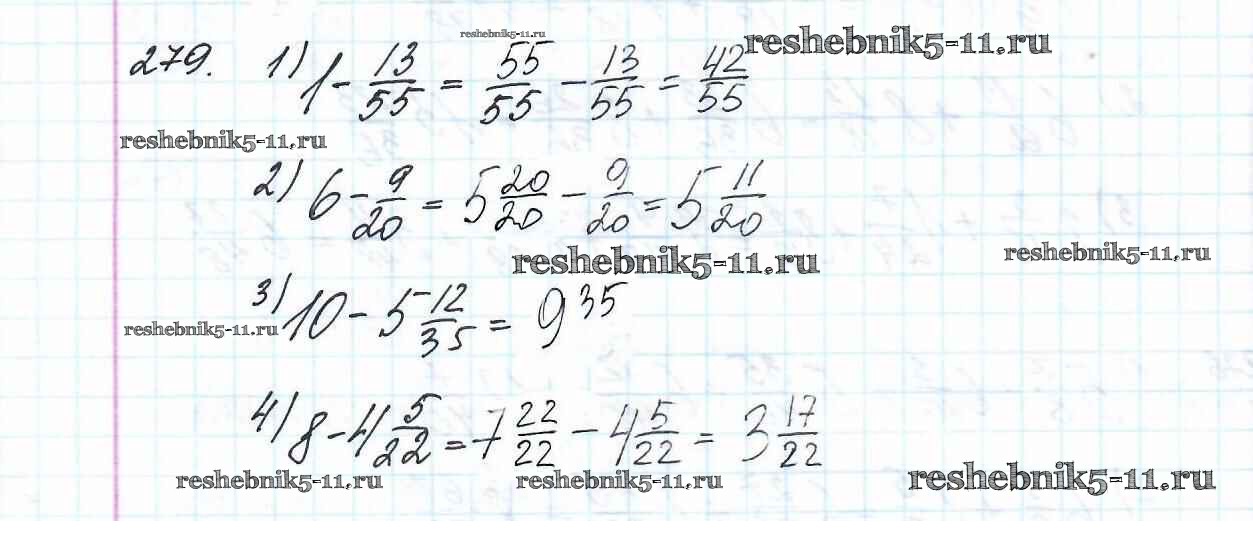 reshebnik5-11.ru
reshebnik5-11.ru
279. 1) 1 - 13/55 = 55/55 - 13/55 = 42/55
reshebnik5-11.ru
2) 6 - 9/20 = 5 20/20 - 9/20 = 5 11/20
reshebnik5-11.ru
reshebnik5-11.ru
3) 10 - 5 12/35 = 9 35
reshebnik5-11.ru
4) 8 - 4 5/22 = 7 22/22 - 4 5/22 = 3 17/22
reshebnik5-11.ru
reshebnik5-11.ru
reshebnik5-11.ru